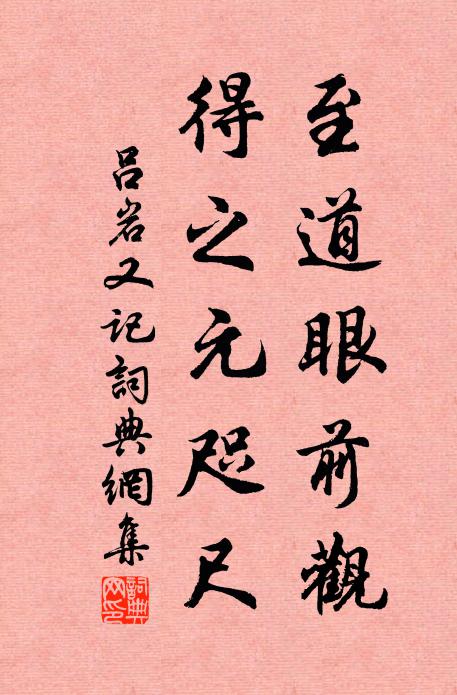 至道眼前觀
得之元咫尺
吕岩又記詞典網集
詞典網印